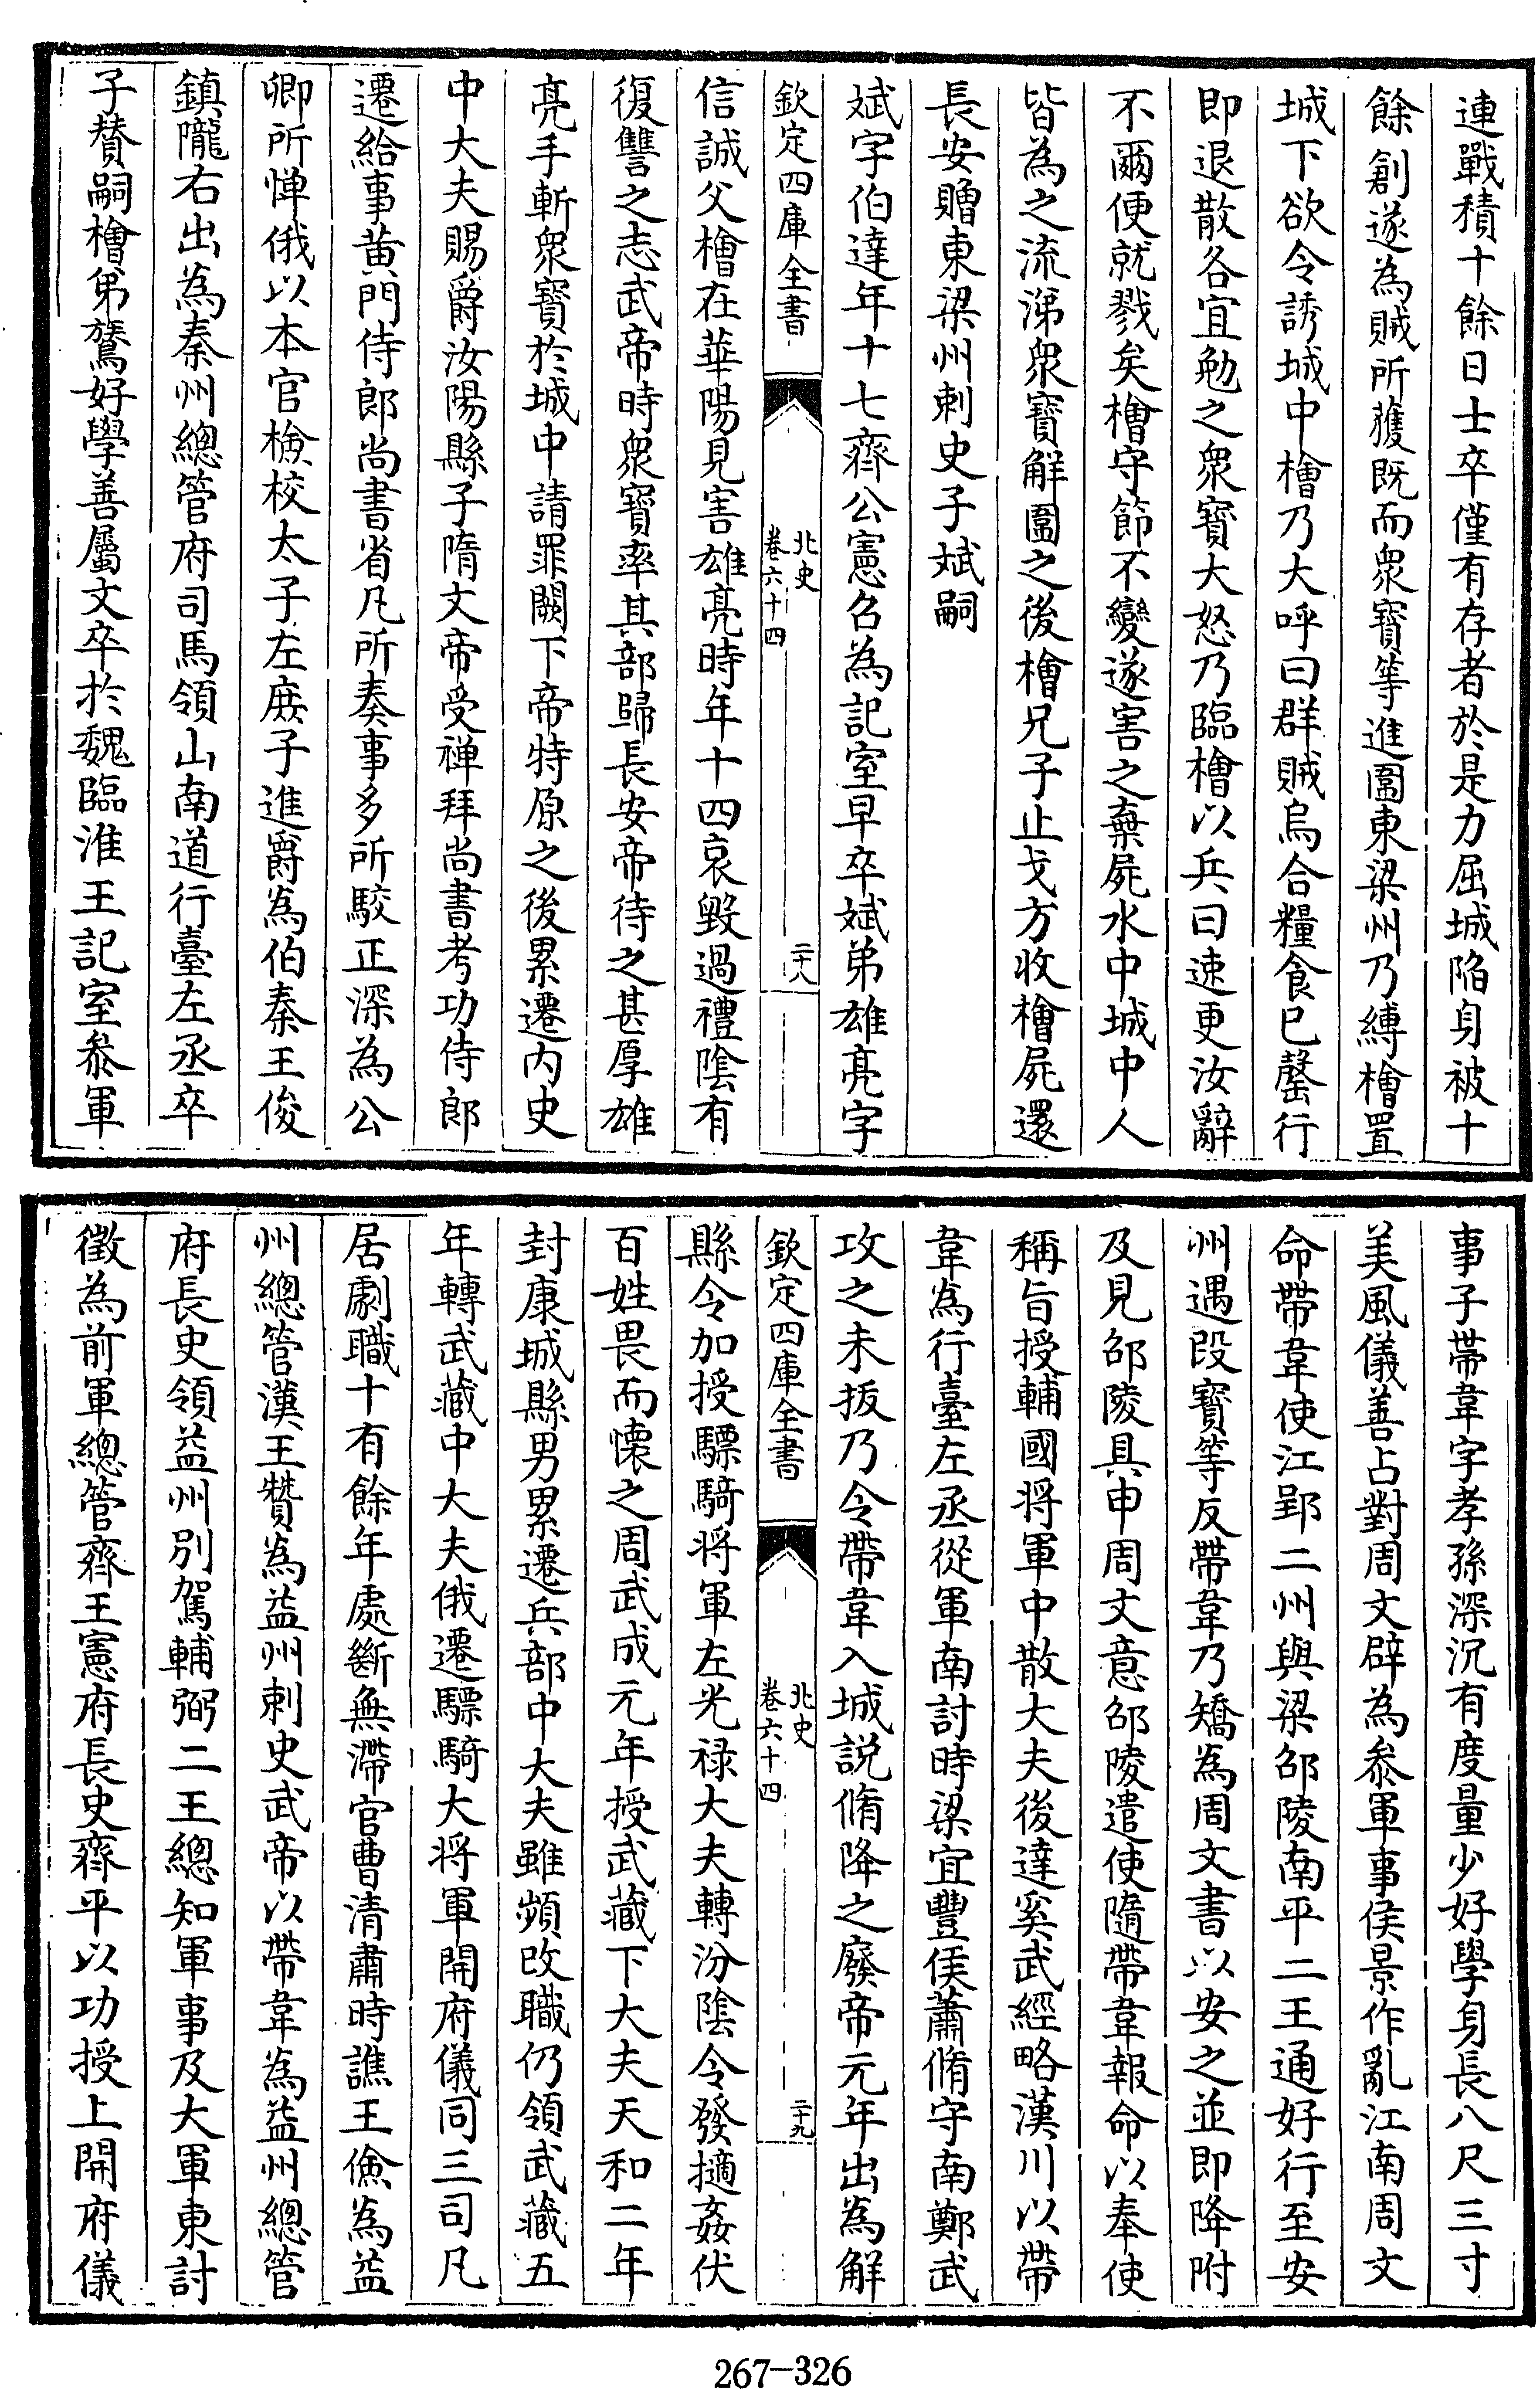 連戰積十餘日士卒僅有存者於是力屈城陷身被十
餘創遂為賊所獲既而衆寳等進圍東梁州乃縛檜置
城下欲令誘城中檜乃大呼曰群賊烏合糧食已罄行
即退散各宜勉之衆寳大怒乃臨檜以兵曰速更汝辭
不爾便就戮矣檜守節不變遂害之棄屍水中城中人
皆為之流涕衆寳解圍之後檜兄子止戈方收檜屍還
長安贈東梁州刺史子斌嗣
斌字伯達年十七齊公憲召為記室早卒斌弟雄亮字
欽定四庫全書
北史
卷六十四
二十八
信誠父檜在華陽見害雄亮時年十四哀毀過禮陰有
復讐之志武帝時衆寳率其部歸長安帝待之甚厚雄
亮手斬衆寳於城中請罪闕下帝特原之後累遷內史
中大夫賜爵汝陽縣子隋文帝受禅拜尚書考功侍郎
遷給事黄門侍郎尚書省凡所奏事多所駮正深為公
卿所憚俄以本官檢校太子左庶子進爵為伯秦王俊
鎮隴右出為秦州總管府司馬領山南道行臺左丞卒
子賛嗣檜弟鷟好學善屬文卒於魏臨淮王記室叅軍
事子帶韋字孝孫深沉有度量少好學身長八尺三寸
美風儀善占對周文辟為叅軍事侯景作亂江南周文
命帶韋使江郢二州與梁邵陵南平二王通好行至安
州遇段寳等反帶韋乃矯為周文書以安之並即降附
及見邵陵具申周文意邵陵遣使隨帶韋報命以奉使
稱旨授輔國將軍中散大夫後達奚武經略漢川以帶
韋為行臺左丞從軍南討時梁宜豐侯蕭脩守南鄭武
攻之未拔乃令帶韋入城説脩降之廢帝元年出為解
欽定四庫全書
北史
卷六十四
二十九
縣令加授驃騎將軍左光禄大夫轉汾陰令發擿姦伏
百姓畏而懷之周武成元年授武藏下大夫天和二年
封康城縣男累遷兵部中大夫雖頻改職仍領武藏五
年轉武藏中大夫俄遷驃騎大將軍開府儀同三司凡
居劇職十有餘年處斷無滯官曹清肅時譙王儉為益
州總管漢王贊為益州刺史武帝以帶韋為益州總管
府長史領益州別駕輔弼二王總知軍事及大軍東討
徵為前軍總管齊王憲府長史齊平以功授上開府儀
267-326